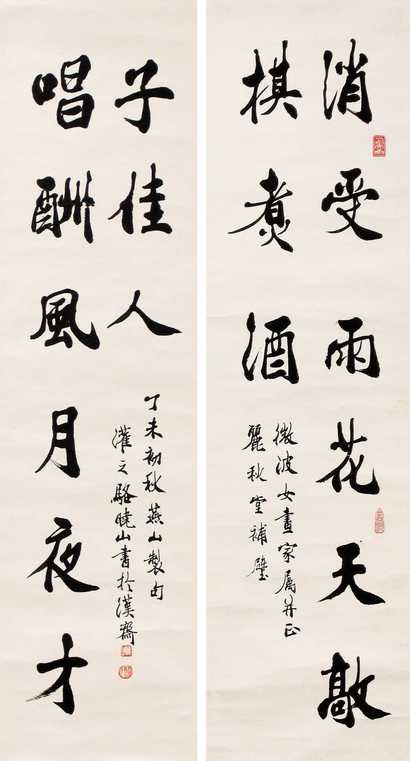 消受雨花天敲
棋煮酒
微波女畫家屬并正
麗秋堂補壁
唱酬風月夜才
子佳人
丁未初秋燕山製句
灌之駱曉山書於漢齋